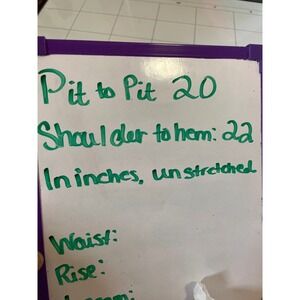 Pit to Pit 20
Shoulder to hem: 22
In inches, unstretched
Waist:
Rise: